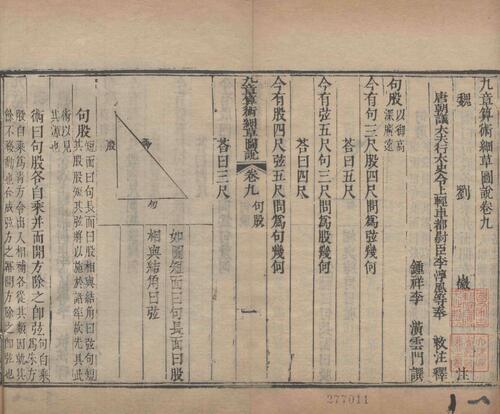 九章算術細草圖說卷九
魏 劉 徽 注
唐朝議大夫行太史令上輕車都尉臣李淳風等奉 敕注釋
鍾祥李 潢雲門譔
句股
以御高
深廣遠
今有句三尺股四尺問為弦幾何
荅曰五尺
今有弦五尺句三尺問為股幾何
荅曰四尺
今有股四尺弦五尺問為句幾何
荅曰三尺
九章算術細草圖說
卷九
句股
一
弦
股
句
如圖短面曰句長面曰股
相與結角曰弦
句股
短面曰句長面曰股相與結角曰弦句短
其股股短其弦將以施於諸率故先具此
術以見
其源也
術曰句股各自乘并而開方除之即弦
句自乘為朱方
股自乘為青方令出入相補各從其類因就其
餘不移動也合成弦方之冪開方除之即弦也
277011